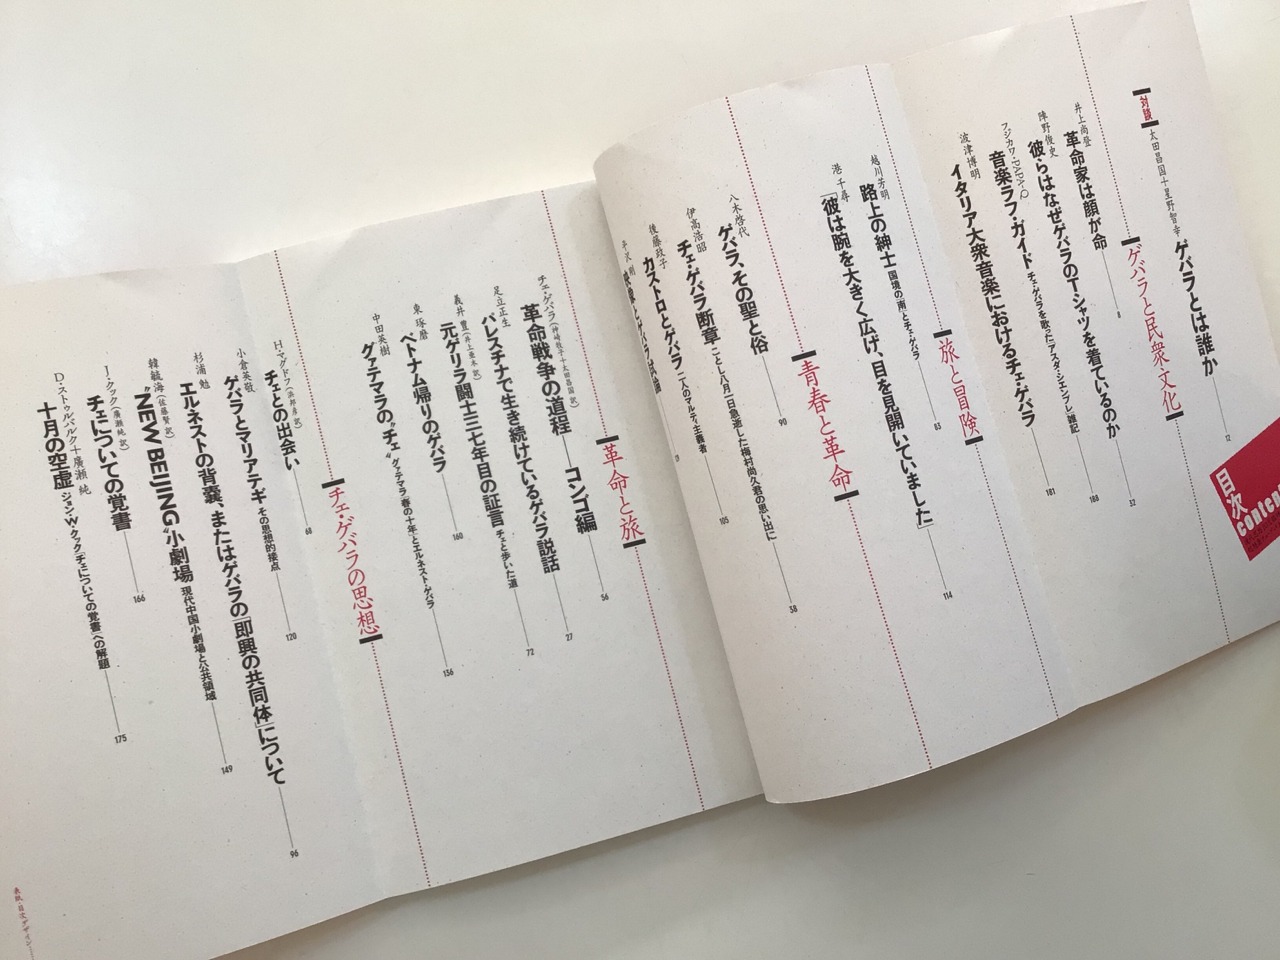 目次
content
【対談】
太田昌国+星野智幸 ゲバラとは誰か 12
【ゲバラと民衆・文化】
井上尚登 革命家は顔が命 8
陣野俊史 彼らはなぜゲバラのTシャツを着ているのか 32
フジカワ・PAPA-Q 音楽ラフ・ガイド チェ・ゲバラを歌った「アスタ・シエンプレ」雑記 188
波津博明 イタリア大衆音楽におけるチェ・ゲバラ 181
【旅と冒険】
越川芳明 路上の紳士 国境の「南」とチェ・ゲバラ 63
港千尋 「彼は腕を大きく広げ、目を見開いていました」 114
【青春と革命】
八木啓代 ゲバラ、その聖と俗 90
伊高浩昭 チェ・ゲバラ断章 ことし八月一日急逝した梅村尚久君の思い出に 38
後藤政子 カストロとゲバラ 二人のマルティ主義者 105
平沢剛
【革命と旅】
チェ・ゲバラ(神崎牧子+太田昌国訳) 革命戦争の道程──コンゴ編 56
足立正生 パレスチナで生き続けているゲバラ説話 27
義井豊(井上亜木訳) 元ゲリラ闘士三七年目の証言 チェと歩いた道 72
東琢磨 ベトナム帰りのゲバラ 160
中田英樹 グァテマラの“チェ” グァテマラ「春の十年」とエルネスト・ゲバラ 136
【チェ・ゲバラの思想】
H・マグドフ(浜邦彦訳) チェとの出会い 68
小倉英敬 ゲバラとマリアテギ その思想的接点 120
杉浦勉 エルネストの背嚢、またはゲバラの「即興の共同体」について 96
韓毓海(佐藤賢訳) “NEW BEIJING”小劇場 現代中国小劇場と公共領域 149
J・クック(廣瀬純訳) チェについての覚書 166
D・ストゥルバルク+廣瀬純 十月の空虚 ジョン・W・クック「チェについての覚書」への解題 175
表紙・目次デザイン